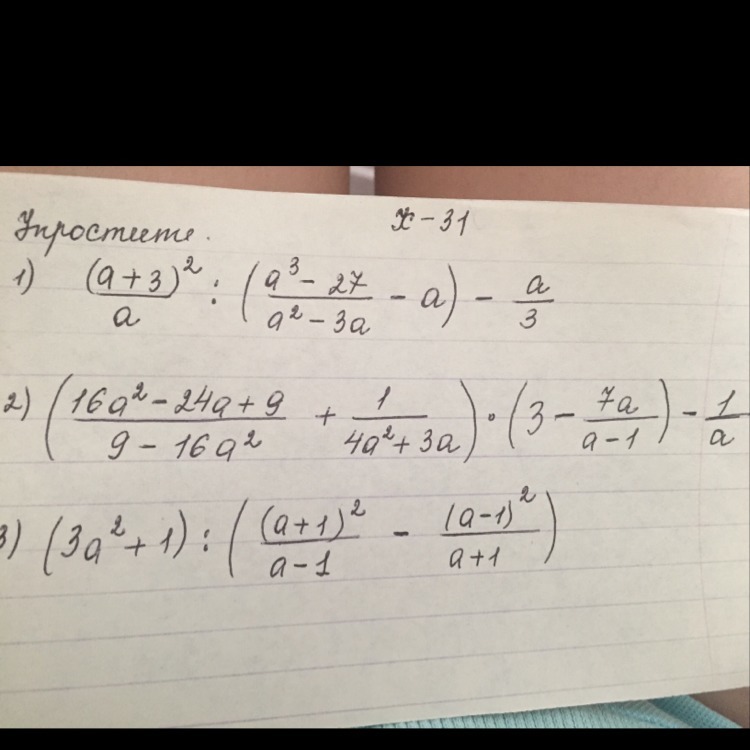 Упростите. Ж-31
1) (a+3)²/a : ((a³-27)/(a²-3a) - a) - a/3
2) ((16a²-24a+9)/(9-16a²) + 1/(4a²+3a)) · (3 - 7a/(a-1)) - 1/a
3) (3a²+1) : ((a+1)²/(a-1) - (a-1)²/(a+1))